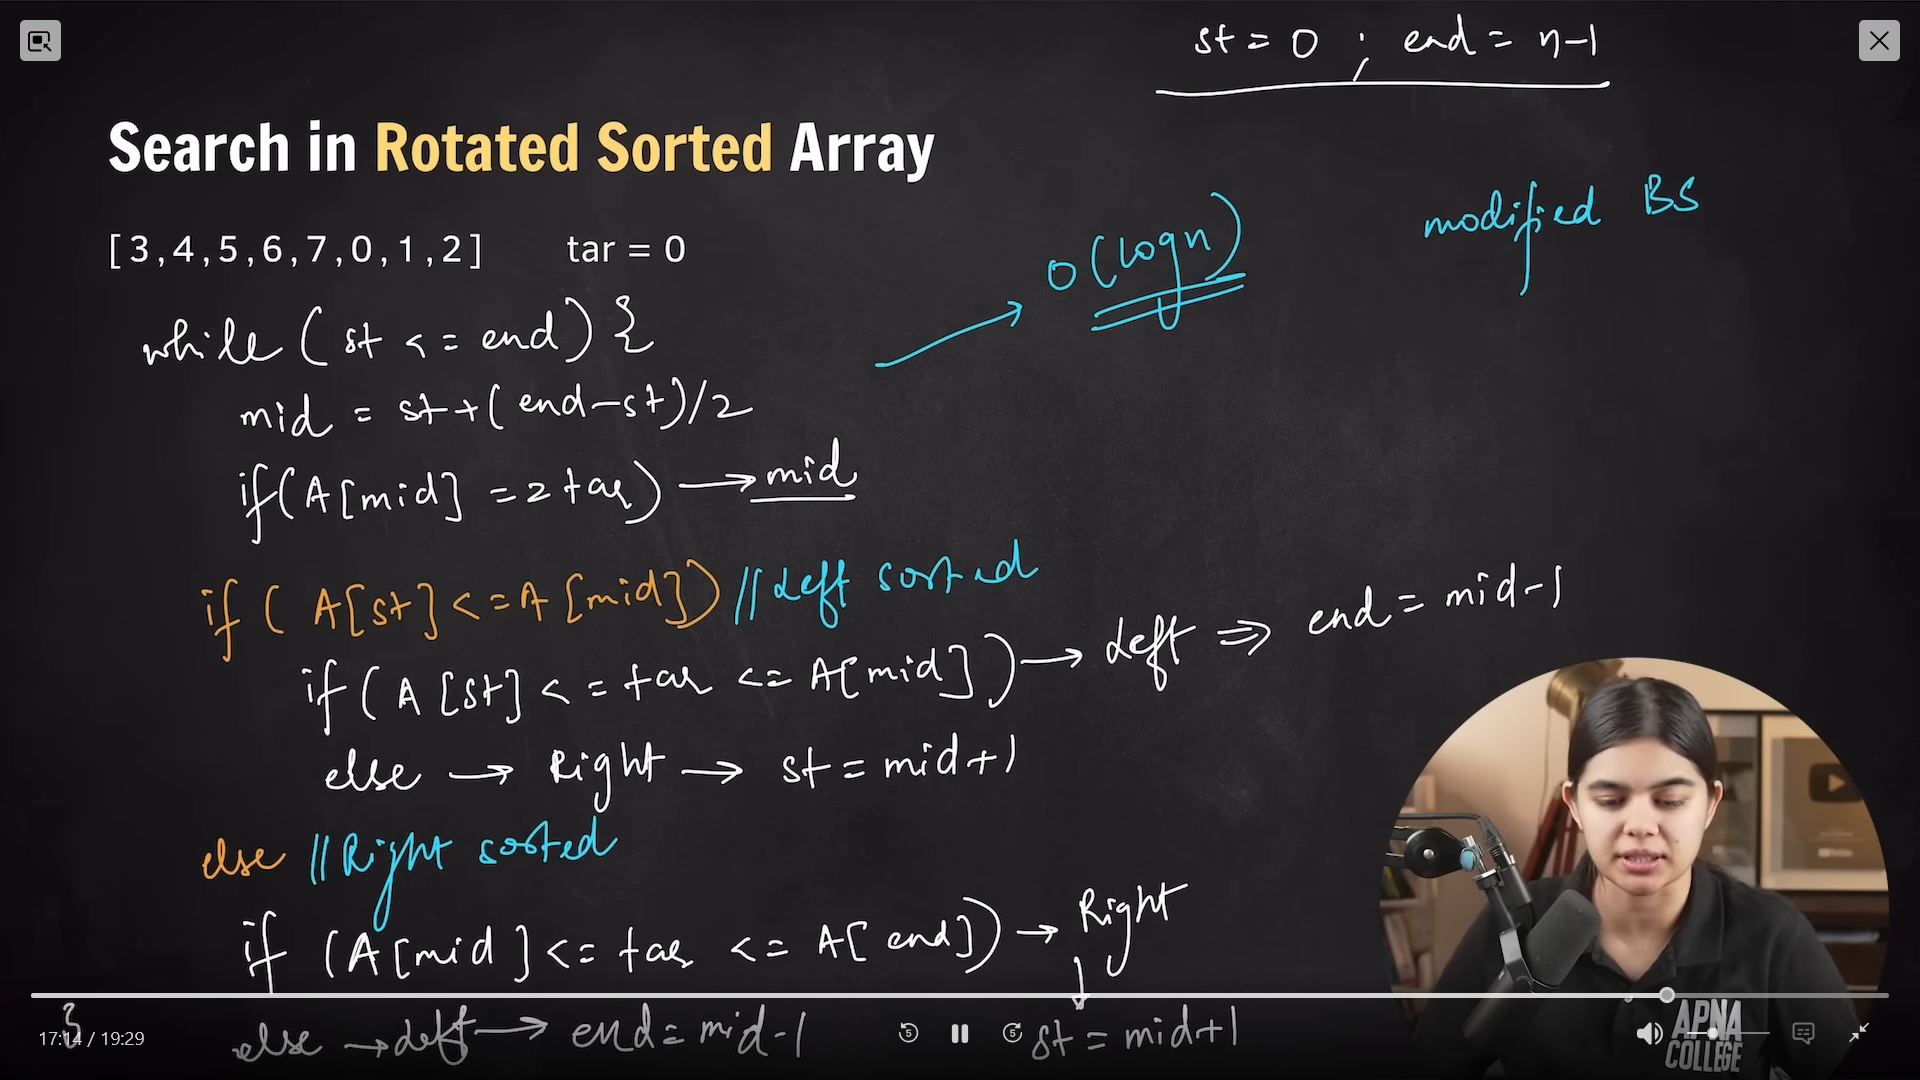 st = 0 ; end = n-1
Search in Rotated Sorted Array
modified BS
[3,4,5,6,7,0,1,2] tar = 0
O(logn)
while ( st <= end) {
mid = st+(end-st)/2
if(A[mid] == tar) → mid
if ( A[st] <= A[mid]) // Left sorted
if ( A [st] <= tar <= A[mid]) → Left ⇒ end = mid-1
else → Right → st = mid+1
else // Right sorted
if (A[mid] <= tar <= A[end]) → Right
else → Left → end = mid-1 st = mid+1
}
17:14 / 19:29
5
5
APNA
COLLEGE